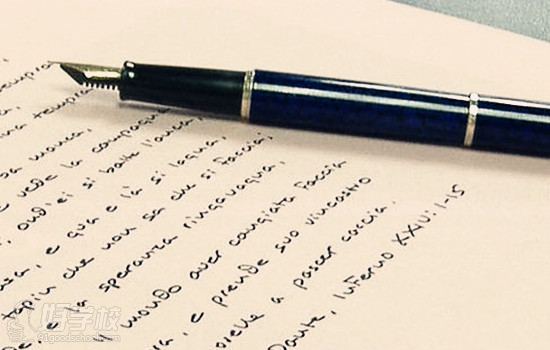 tempra
manca,
e vede la campagna
, ond'ei si batte l'anca,
e qua e là si lagna,
tapin che non sa che si faccia;
e la speranza ringavagna,
mondo aver cangiata faccia
, e prende suo vincastro
orelle a pascer caccia.
Dante, Inferno XXIV: 1-15
好学校
91goodschool.com